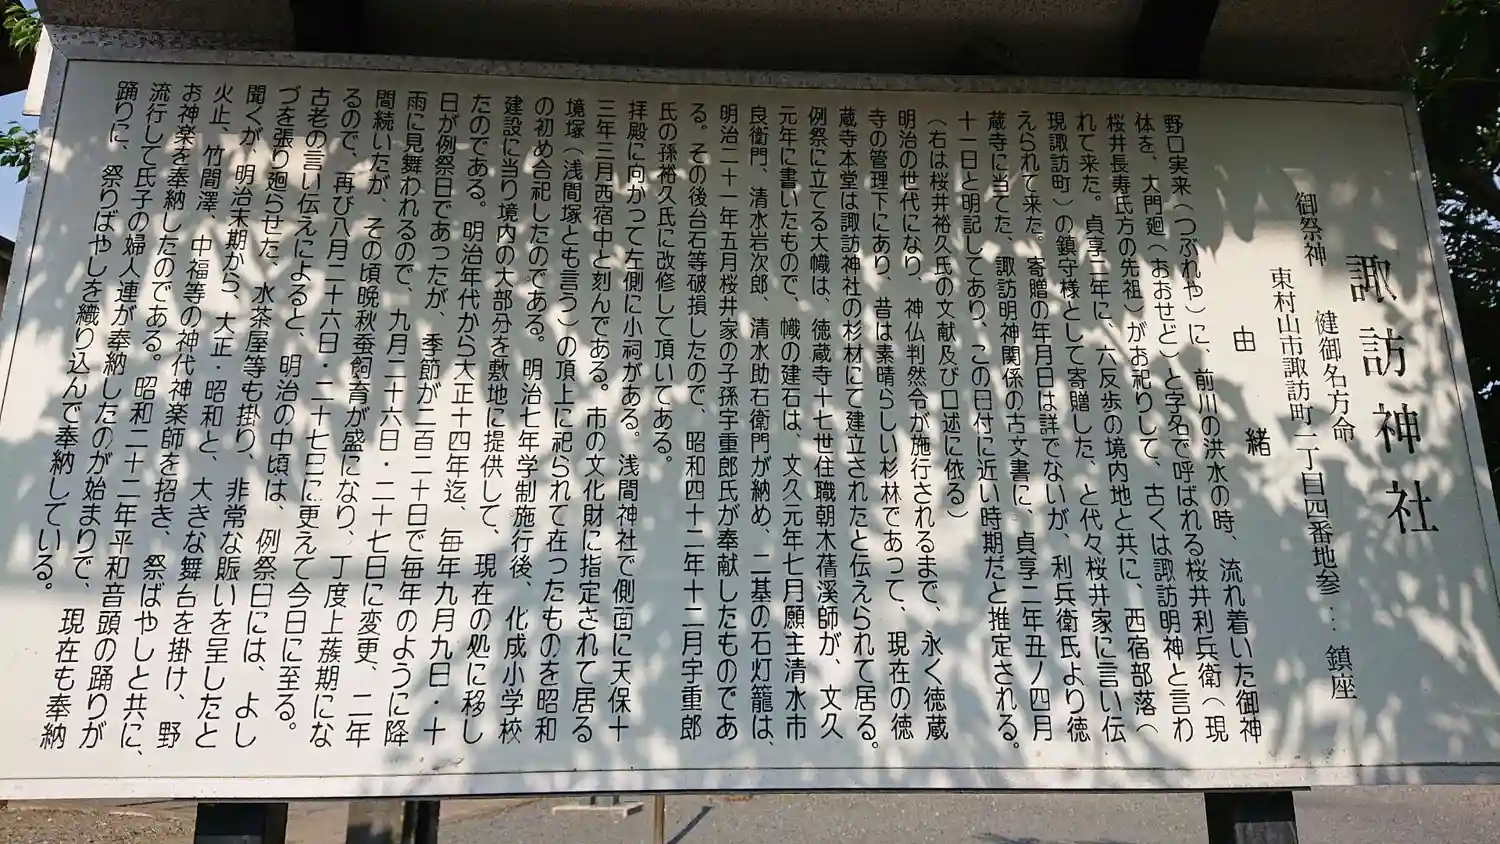 諏訪神社
御祭神　健御名方命
東村山市諏訪町一丁目四番地参…　鎮座
由緒
野口実来（つぶれや）に、前川の洪水の時、流れ着いた御神
体を、大門廻（おおせど）と字名で呼ばれる桜井利兵衛（現
桜井長寿氏方の先祖）がお祀りして、古くは諏訪明神と言わ
れて来た。貞享二年に、六反歩の境内地と共に、西宿部落（
現諏訪町）の鎮守様として寄贈した、と代々桜井家に言い伝
えられて来た。寄贈の年月日は詳でないが、利兵衛氏より徳
蔵寺に当てた、諏訪明神関係の古文書に、貞享二年丑ノ四月
十一日と明記してあり、この日付に近い時期だと推定される。
（右は桜井裕久氏の文献及び口述に依る）
明治の世代になり、神仏判然令が施行されるまで、永く徳蔵
寺の管理下にあり、昔は素晴らしい杉林であって、現在の徳
蔵寺本堂は諏訪神社の杉材にて建立されたと伝えられて居る。
例祭に立てる大幟は、徳蔵寺十七世住職朝木蒨溪師が、文久
元年に書いたもので、幟の建石は、文久元年七月願主清水市
良衛門、清水岩次郎、清水助右衛門が納め、二基の石灯籠は、
明治二十一年五月桜井家の子孫宇重郎氏が奉献したものであ
る。その後台石等破損したので、昭和四十二年十二月宇重郎
氏の孫裕久氏に改修して頂いてある。
拝殿に向かって左側に小祠がある。浅間神社で側面に天保十
三年三月西宿中と刻んである。市の文化財に指定されて居る
境塚（浅間塚とも言う）の頂上に祀られて在ったものを昭和
の初め合祀したのである。明治七年学制施行後、化成小学校
建設に当り境内の大部分を敷地に提供して、現在の処に移し
たのである。明治年代から大正十四年迄、毎年九月九日・十
日が例祭日であったが、季節が二百二十日で毎年のように降
雨に見舞われるので、九月二十六日・二十七日に変更、二年
間続いたが、その頃晩秋蚕飼育が盛になり、丁度上蔟期にな
るので、再び八月二十六日・二十七日に更えて今日に至る。
古老の言い伝えによると、明治の中頃は、例祭日には、よし
づを張り廻らせた、水茶屋等も掛り、非常な賑いを呈したと
聞くが、明治末期から、大正・昭和と、大きな舞台を掛け、野
火止、竹間澤、中福等の神代神楽師を招き、祭ばやしと共に、
お神楽を奉納したのである。昭和二十二年平和音頭の踊りが
流行して氏子の婦人連が奉納したのが始まりで、現在も奉納
踊りに、祭りばやしを織り込んで奉納している。